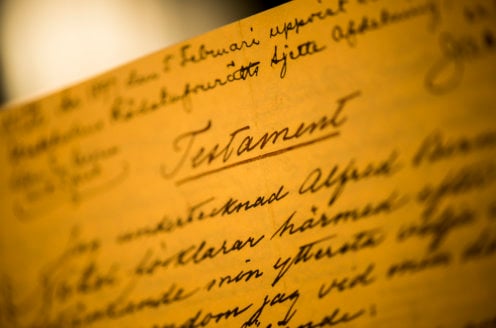 1897 den 5 Februari uppvist
Rådstufvurätts sjette afdelning
Testament
Jag undertecknad Alfred Bern
Nobel förklarar härmed efter
tänkande min yttersta vilja
endom jag vid min dö
ljande: